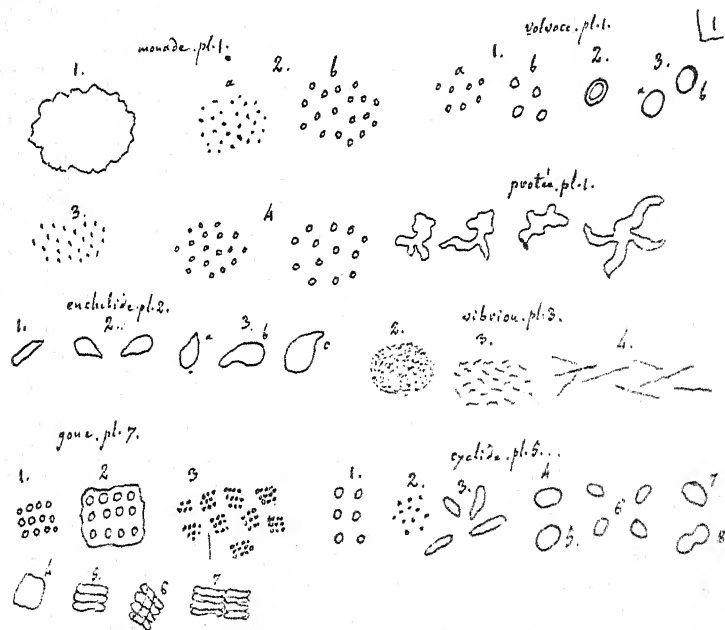 monade. pl. 1.
1.
2.
a
b
3.
4
volvoce. pl. 1.
1
1.
a
b
2.
3.
a
b
protée. pl. 1.
enchelide. pl. 2.
1.
2.
3.
a
b
c
vibrion. pl. 3.
2.
3.
4.
gone. pl. 7.
1.
2
3
4
5.
6
7
cyclide. pl. 5...
1.
2.
3.
4
5.
6
7
8